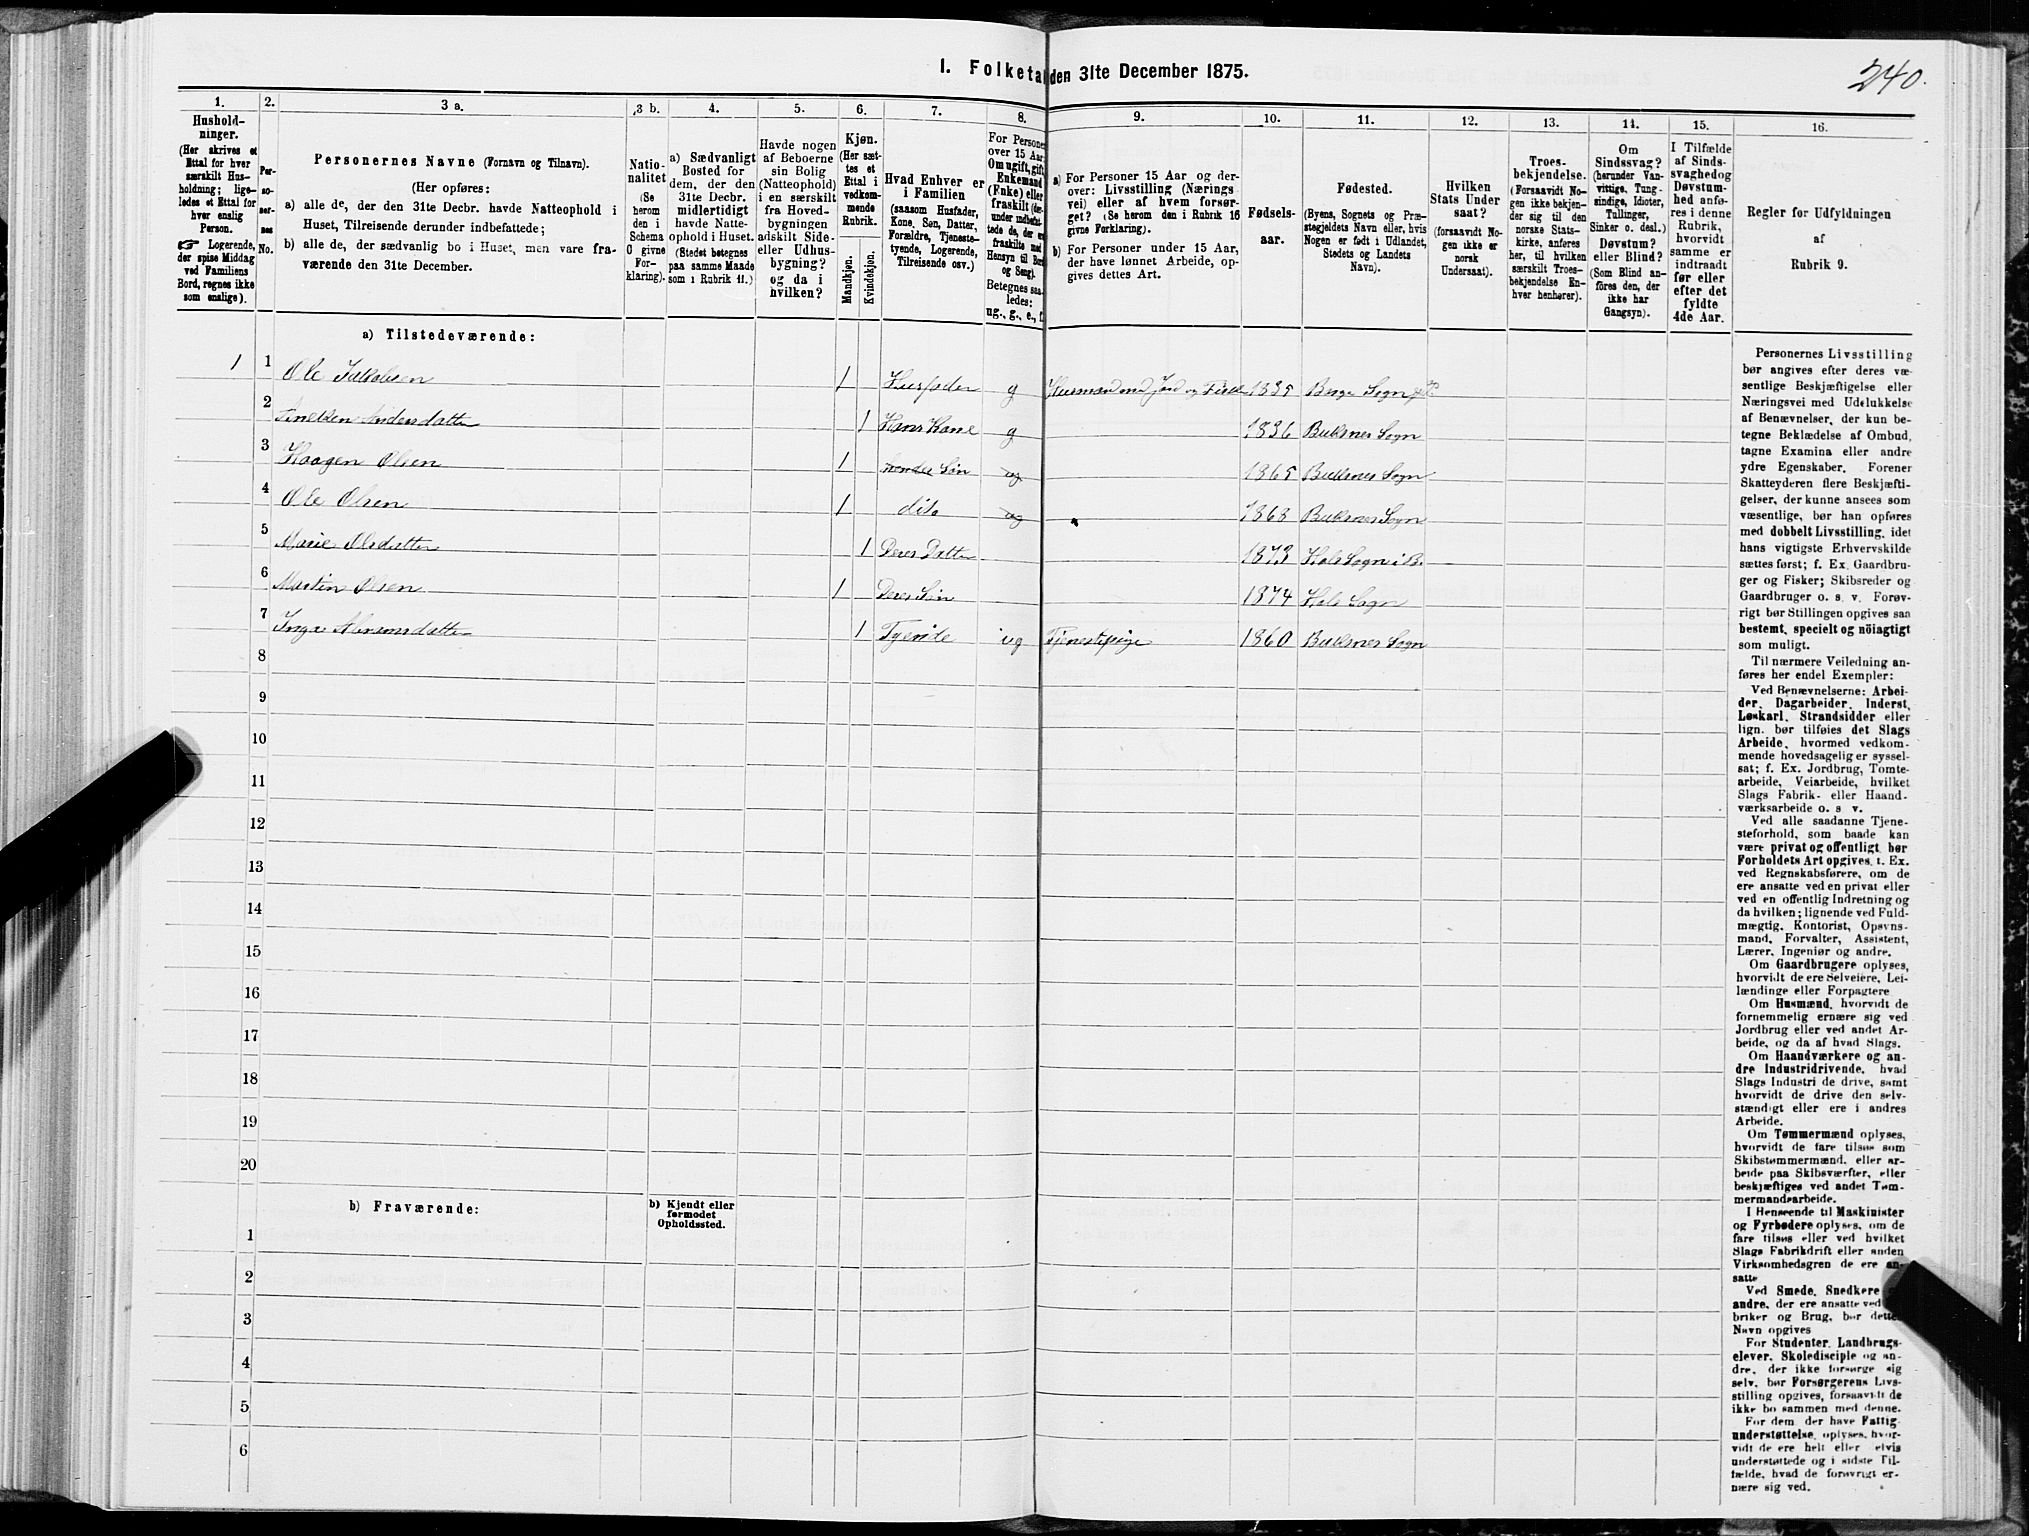 I. Folketal den 31te December 1875.
240.
1.
Hushold-
ninger.
(Her skrives et
Ettal for hver
særskilt Hus-
holdning; lige-
ledes et Ettal for
hver enslig
Person.
☞ Logerende,
der spise Middag
ved Familiens
Bord, regnes ikke
som enslige).
2.
Per-
so-
ner-
nes
No.
3 a.
Personernes Navne (Fornavn og Tilnavn).
(Her opføres:
a) alle de, der den 31te Decbr. havde Natteophold i
Huset, Tilreisende derunder indbefattede;
b) alle de, der sædvanlig bo i Huset, men vare fra-
værende den 31te December.
3 b.
Natio-
nalitet
(Se
herom
den i
Schema
O givne
For-
klaring).
4.
a) Sædvanligt
Bosted for
dem, der den
31te Decbr.
midlertidigt
havde Natte-
ophold i Huset.
(Stedet betegnes
paa samme Maade
som i Rubrik 11.)
5.
Havde nogen
af Beboerne
sin Bolig
(Natteophold)
i en særskilt
fra Hoved-
bygningen
adskilt Side-
eller Udhus-
bygning?
og da i
hvilken?
6.
Kjøn.
(Her sæt-
tes et
Ettal i
vedkom-
mende
Rubrik.
Mandkjøn.
Kvindekjøn.
7.
Hvad Enhver er
i Familien
(saasom Husfader,
Kone, Søn, Datter,
Forældre, Tjeneste-
tyende, Logerende,
Tilreisende osv.)
8.
For Personer
over 15 Aar:
Om ugift, gift,
Enkemand
(Enke) eller
fraskilt (der-
under indbefat-
tede de, der ere
fraskilte med
Hensyn til Bord
og Seng).
Betegnes saa-
ledes:
ug., g., e., f.
9.
a) For Personer 15 Aar og der-
over: Livsstilling (Nærings
vei) eller af hvem forsør-
get? (Se herom den i Rubrik 16
givne Forklaring).
b) For Personer under 15 Aar,
der have lønnet Arbeide, op-
gives dettes Art.
10.
Fødsels-
aar.
11.
Fødested.
(Byens, Sognets og Præ-
stegjeldets Navn eller, hvis
Nogen er født i Udlandet,
Stedets og Landets
Navn).
12.
Hvilken
Stats Under
saat?
(forsaavidt No-
gen ikke er
norsk
Undersaat).
13.
Troes-
bekjendelse.
(Forsaavidt No-
gen ikke bekjen-
der sig til den
norske Stats-
kirke, anføres
her, til hvilken
særskilt Troes-
bekjendelse En-
hver henhører).
14.
Om
Sindssvag?
(herunder Van-
vittige, Tung-
sindige, Idioter,
Tullinger,
Sinker o. desl.)
Døvstum?
eller Blind?
(Som Blind an-
føres den, der
ikke har
Gangsyn).
15.
I Tilfælde
af Sinds-
svaghed og
Døvstum-
hed anfø-
res i denne
Rubrik,
hvorvidt
samme er
indtraadt
før eller
efter det
fyldte
4de Aar.
16.
Regler for Udfyldningen
af
Rubrik 9.
a) Tilstedeværende:
1 1 Ole Jakobsen 1 Husfader g Husmand med Jord og Fisker 1835 Sogn
2 Andersdatter 1 Hans Kone g 1836 Buksnes Sogn
3 Haagen Olsen 1 Søn ug 1865 Buksnes Sogn
4 Ole Olsen 1 dito ug 1868 Buksnes Sogn
5 Marie Olsdatter 1 Deres Datter 1873 Hols Sogn i B.
6 Martin Olsen 1 Deres Søn 1874 Hols Sogn
7 Inga Abramsdatter 1 Tyende ug Tjenestepige 1860 Buksnes Sogn
8
9
10
11
12
13
14
15
16
17
18
19
20
b) Fraværende:
b) Kjendt eller
formodet
Opholdssted.
1
2
3
4
5
6
Personernes Livsstilling
bør angives efter deres væ-
sentlige Beskjæftigelse eller
Næringsvei med Udelukkelse
af Benævnelser, der kun be-
tegne Beklædelse af Ombud,
tagne Examina eller andre
ydre Egenskaber. Forener
Skatteyderen flere Beskjæfti-
gelser, der kunne ansees som
væsentlige, bør han opføres
med dobbelt Livsstilling, idet
hans vigtigste Erhvervskilde
sættes først; f. Ex. Gaardbru-
ger og Fisker; Skibsreder og
Gaardbruger o. s. v. Forøv-
rigt bør Stillingen opgives saa
bestemt, specielt og nöiagtigt
som muligt.
Til nærmere Veiledning an-
føres her endel Exempler:
Ved Benævnelserne: Arbei-
der, Dagarbeider, Inderst,
Løskarl, Strandsidder eller
lign. bør tilføies det Slags
Arbeide, hvormed vedkom-
mende hovedsagelig er syssel-
sat; f. Ex. Jordbrug, Tomte-
arbeide, Veiarbeide, hvilket
Slags Fabrik- eller Haand-
værksarbeide o. s v.
Ved alle saadanne Tjene-
steforhold, som baade kan
være privat og offentligt, bør
Forholdets Art opgives, t. Ex.
ved Regnskabsførere, om de
ere ansatte ved en privat eller
ved en offentlig Indretning og
da hvilken; lignende ved Fuld-
mægtig, Kontorist, Opsyns-
mand, Forvalter, Assistent,
Lærer, Ingeniør og andre.
Om Gaardbrugere oplyses,
hvorvidt de ere Selveiere, Lei-
lændinge eller Forpagtere
Om Husmænd, hvorvidt de
fornemmelig ernære sig ved
Jordbrug eller ved andet Ar-
beide, og da af hvad Slags.
Om Haandværkere og an-
dre Industridrivende, hvad
Slags Industri de drive, samt
hvorvidt de drive den selv-
stændigt eller ere i andres
Arbeide.
Om Tømmermænd oplyses,
hvorvidt de fare tilsøs som
Skibstømmermænd, eller ar-
beide paa Skibsværfter, eller
beskjæftiges ved andet Tøm-
mermandsarbeide.
I Henseende til Maskinister
og Fyrbødere oplyses, om de
fare tilsøs eller ved hvilket
Slags Fabrikdrift eller anden
Virksomhedsgren de ere an-
satte
Ved Smede, Snedkere
andre, der ere ansatte ved
briker og Brug, bør dettes
Navn opgives
For Studenter, Landbrugs-
elever, Skoledisciple og an-
dre, der ikke forsørge sig
selv, bør Forsørgerens Livs-
stilling opgives, forsaavidt de
ikke bo sammen med denne.
For dem, der have Fattig-
understøttelse, oplyses, hvor-
vidt de ere helt eller delvis
understøttede og i sidste Til-
fælde, hvad de forøvrigt er-
nære sig ved.